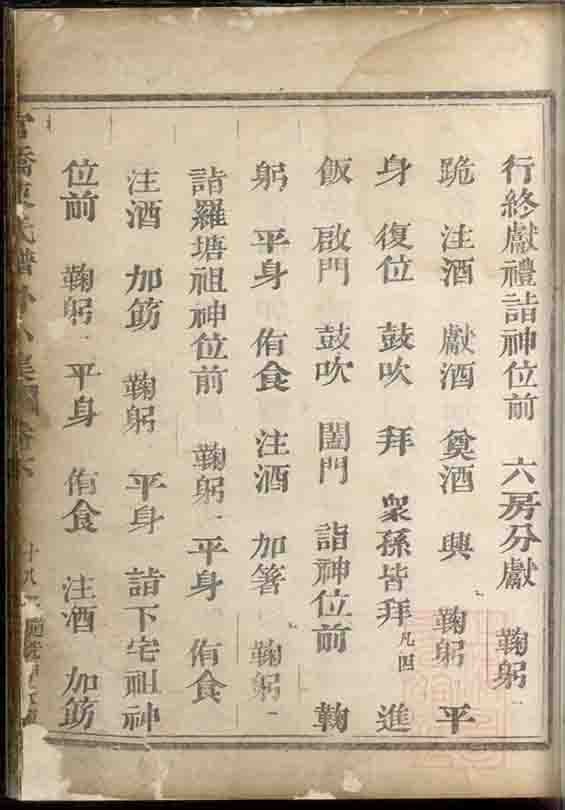 行終獻禮詣神位前 六房分獻 鞠躬
跪 注酒 獻酒 奠酒 興 鞠躬 平
身 復位 鼓吹 拜 衆孫皆拜凡四 進
飯 啟門 鼓吹 闔門 詣神位前 鞠
躬 平身 侑食 注酒 加箸 鞠躬
詣羅塘祖神位前 鞠躬 平身 侑食
注酒 加筯 鞠躬 平身 詣下宅祖神
位前 鞠躬 平身 侑食 注酒 加筯